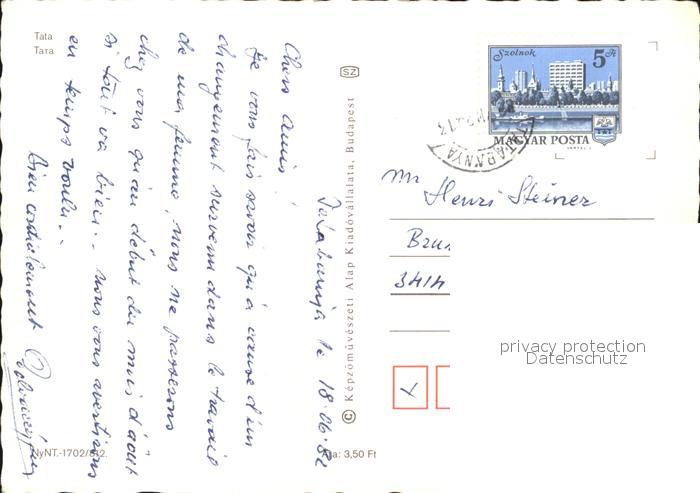 Tata
Tara
Tatabánya le 18.06.82
Chers amis !
Je vous fais savoir qu'à cause d'un
changement survenu dans le travail
de ma femme, nous ne passerons
chez vous qu'au début du mois d'août
si tout va bien.. nous vous avertirons
en temps voulu..
Bien cordialement
NyNT.-1702/812.
Ára: 3,50 Ft
© Képzőművészeti Alap Kiadóvállalata, Budapest
SZ
Szolnok
5 Ft
MAGYAR POSTA
Mr
Henri Steiner
3414
privacy protection
Datenschutz